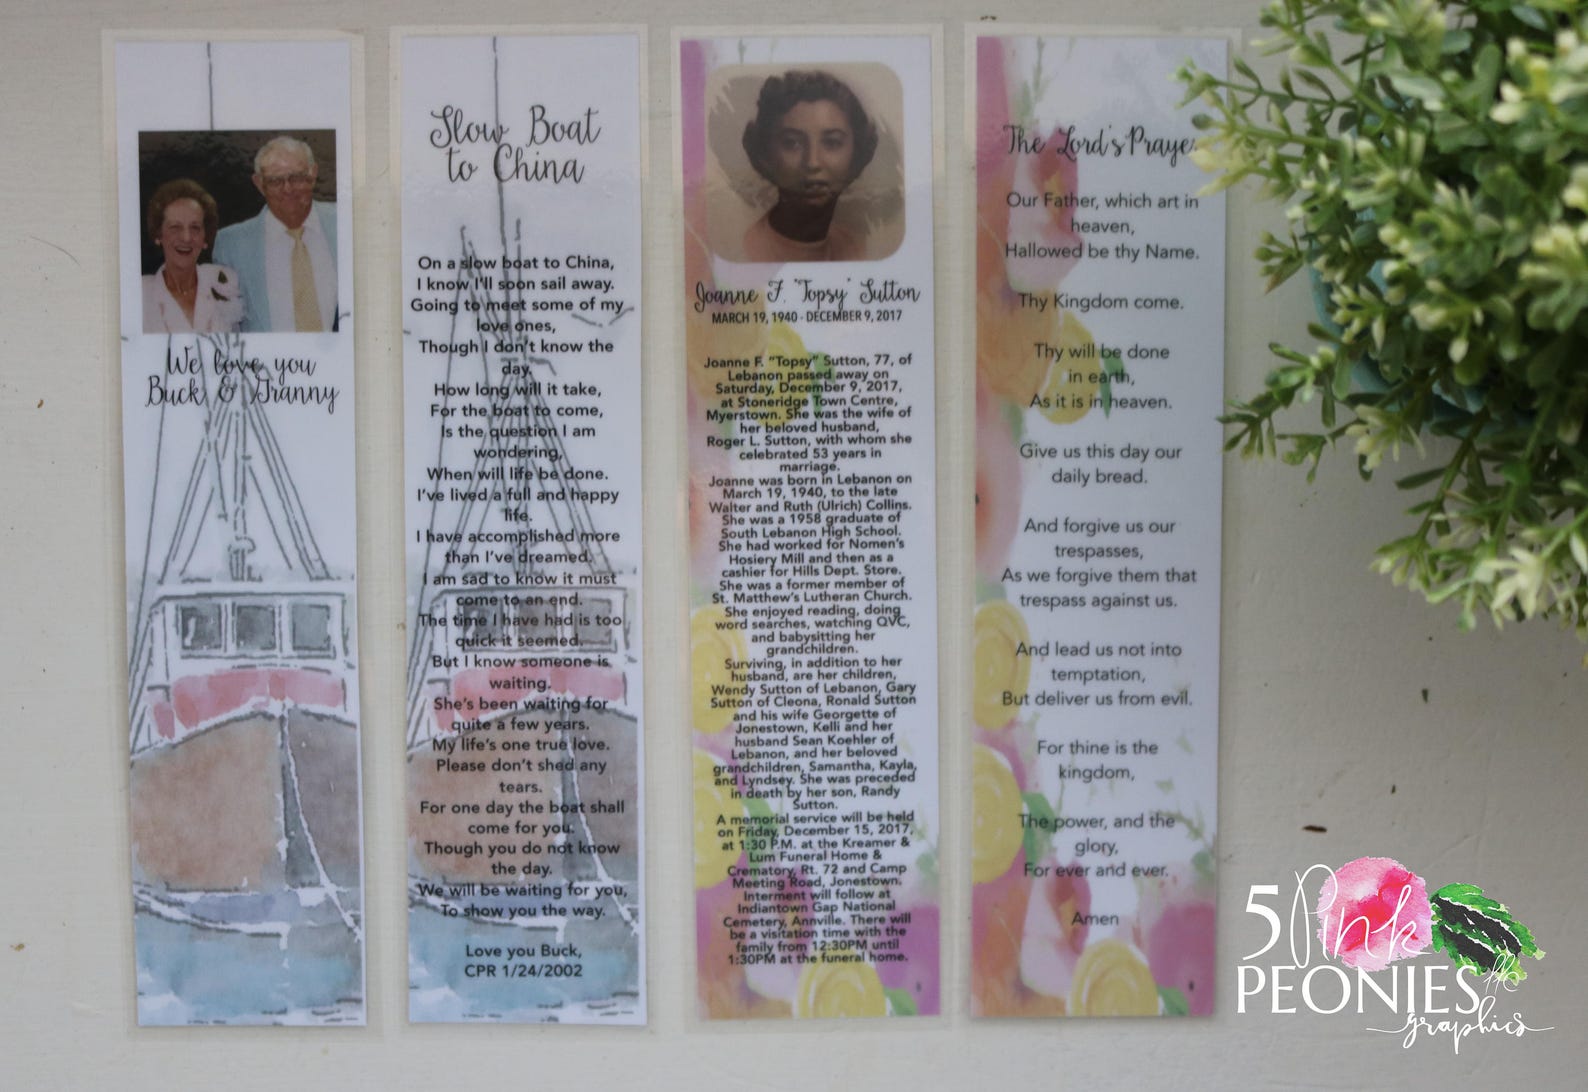 We love you
Buck & Granny
Slow Boat
to China
On a slow boat to China,
I know I'll soon sail away.
Going to meet some of my
love ones,
Though I don't know the
day.
How long will it take,
For the boat to come,
Is the question I am
wondering,
When will life be done.
I've lived a full and happy
life.
I have accomplished more
than I've dreamed.
I am sad to know it must
come to an end.
The time I have had is too
quick it seemed.
But I know someone is
waiting.
She's been waiting for
quite a few years.
My life's one true love.
Please don't shed any
tears.
For one day the boat shall
come for you.
Though you do not know
the day.
We will be waiting for you,
To show you the way.
Love you Buck,
CPR 1/24/2002
Joanne F. "Topsy" Sutton
MARCH 19, 1940 - DECEMBER 9, 2017
Joanne F. "Topsy" Sutton, 77, of
Lebanon passed away on
Saturday, December 9, 2017,
at Stoneridge Town Centre,
Myerstown. She was the wife of
her beloved husband,
Roger L. Sutton, with whom she
celebrated 53 years in
marriage.
Joanne was born in Lebanon on
March 19, 1940, to the late
Walter and Ruth (Ulrich) Collins.
She was a 1958 graduate of
South Lebanon High School.
She had worked for Nomen's
Hosiery Mill and then as a
cashier for Hills Dept. Store.
She was a former member of
St. Matthew's Lutheran Church.
She enjoyed reading, doing
word searches, watching QVC,
and babysitting her
grandchildren.
Surviving, in addition to her
husband, are her children,
Wendy Sutton of Lebanon, Gary
Sutton of Cleona, Ronald Sutton
and his wife Georgette of
Jonestown, Kelli and her
husband Sean Koehler of
Lebanon, and her beloved
grandchildren, Samantha, Kayla,
and Lyndsey. She was preceded
in death by her son, Randy
Sutton.
A memorial service will be held
on Friday, December 15, 2017,
at 1:30 P.M. at the Kreamer &
Lum Funeral Home &
Crematory, Rt. 72 and Camp
Meeting Road, Jonestown.
Interment will follow at
Indiantown Gap National
Cemetery, Annville. There will
be a visitation time with the
family from 12:30PM until
1:30PM at the funeral home.
The Lord's Prayer
Our Father, which art in
heaven,
Hallowed be thy Name.
Thy Kingdom come.
Thy will be done
in earth,
As it is in heaven.
Give us this day our
daily bread.
And forgive us our
trespasses,
As we forgive them that
trespass against us.
And lead us not into
temptation,
But deliver us from evil.
For thine is the
kingdom,
The power, and the
glory,
For ever and ever.
Amen
5 Pink
PEONIES
graphics